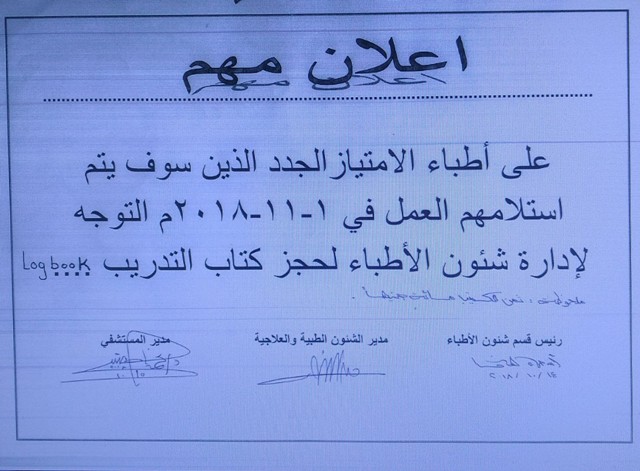 اعلان مهم
على أطباء الامتياز الجدد الذين سوف يتم
استلامهم العمل في ١-١١-٢٠١٨م التوجه
لإدارة شئون الأطباء لحجز كتاب التدريب Log book
رئيس قسم شئون الأطباء
مدير الشئون الطبية والعلاجية
مدير المستشفي
٢٠١٨/١٠/١٤